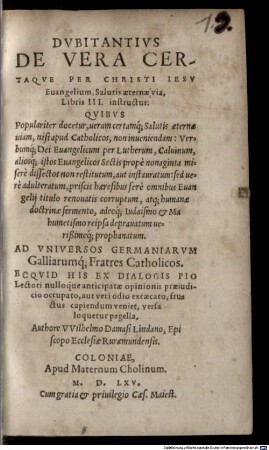 19.
DVBITANTIVS
DE VERA CER-
TAQVE PER CHRISTI IESV
Euangelium, Salutis æternæ via,
Libris III. instructus.
QVIBVS
Populariter docetur, ueram certamq; Salutis æternæ
uiam, nisi apud Catholicos, non inueniendam: Ver-
bumq; Dei Euangelicum per Lutherum, Caluinum,
aliosq; istos Euangelicos Sectis propè nonaginta mi-
serè dissectos non restitutum, aut instauratum: sed ue-
rè adulteratum, priscis hæresibus ferè omnibus Euan
gelij titulo renouatis corruptum, atq; humanæ
doctrinæ fermento, adeoq; Iudaismo & Ma
humetismo reipsa deprauatum ue-
rißimeq; prophanatum.
AD VNIVERSOS GERMANIARVM
Galliarumq; Fratres Catholicos.
ECQVID HIS EX DIALOGIS PIO
Lectori nulloque anticipatæ opinionis præiudi-
cio occupato, aut veri odio excæcato, fru
ctus capiendum veniet, versa
loquetur pagella.
Authore VVilhelmo Damasi Lindano, Epi
scopo Ecclesiæ Ruræmundensis.
COLONIAE,
Apud Maternum Cholinum.
M. D. LXV.
Cum gratia & priuilegio Cæs. Maiest.